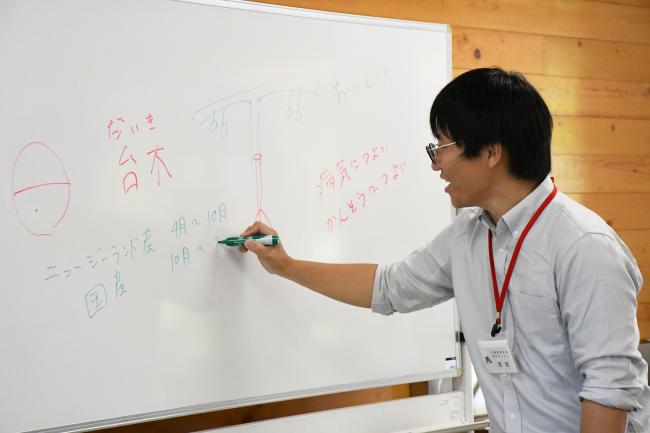 おいしい
だいき
台木
病気につよい
かんそうにつよい
ニュージーランド産 4月~10月
国産 10月~